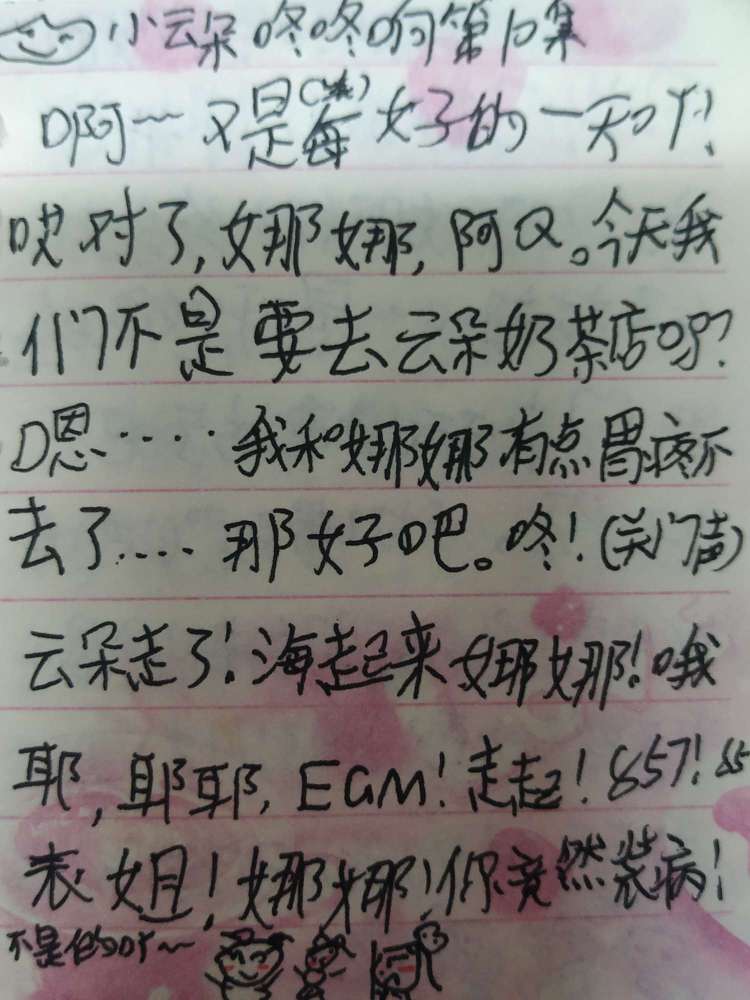 小云朵咚咚响第10集
啊~又是每(美)好的一天吖!
哎对了,娜娜,阿Q。今天我
们不是要去云朵奶茶店吗?
嗯····· 我和娜娜有点胃疼不
去了.... 那好吧。咚!(关门声)
云朵走了!海起来娜娜!哦
耶,耶耶, EGM!走起!857!85
表姐!娜娜!你竟然装病!
不是的吖~